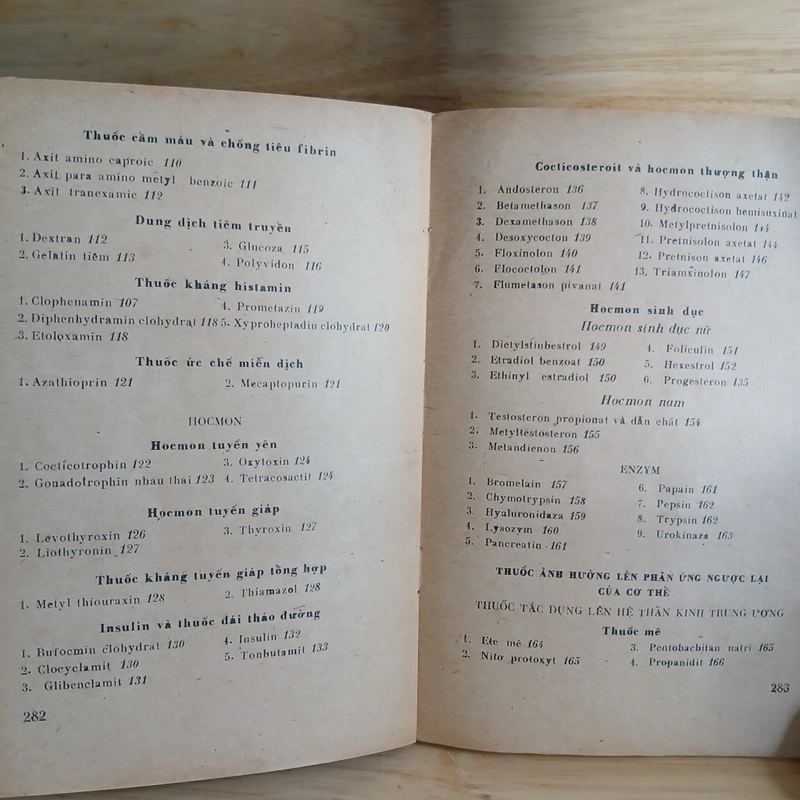 Thuốc cầm máu và chống tiêu fibrin
1. Axit amino caproic 110
2. Axit para amino metyl benzoic 111
3. Axit tranexamic 112
Dung dịch tiêm truyền
1. Dextran 112
3. Glucoza 115
2. Gelatin tiêm 113
4. Polyvidon 116
Thuốc kháng histamin
1. Clophenamin 107
4. Prometazin 119
2. Diphenhydramin clohydrat 118
5. Xyproheptadin clohydrat 120
3. Etoloxamin 118
Thuốc ức chế miễn dịch
1. Azathioprin 121
2. Mecaptopurin 121
HOCMON
Hocmon tuyến yên
1. Cocticotrophin 122
3. Oxytoxin 124
2. Gonadotrophin nhau thai 123
4. Tetracosactit 124
Hocmon tuyến giáp
1. Levothyroxin 126
3. Thyroxin 127
2. Liothyronin 127
Thuốc kháng tuyến giáp tổng hợp
1. Metyl thiouraxin 128
2. Thiamazol 128
Insulin và thuốc đái tháo đường
1. Bufocmin clohydrat 130
4. Insulin 132
2. Clocyclamit 130
5. Tonbutamit 133
3. Glibenclamit 131
282
Cocticosteroit và hocmon thượng thận
1. Andosteron 136
8. Hydrococtison axetat 142
2. Betamethason 137
9. Hydrococtison hemisuxinat
3. Dexamethason 138
10. Metylpretnisolon 144
4. Desoxycocton 139
11. Pretnisolon axetat 144
5. Floxinolon 140
12. Pretnison axetat 146
6. Flocotolon 141
13. Triamxinolon 147
7. Flumetason pivanat 141
Hocmon sinh dục
Hocmon sinh dục nữ
1. Dietylsfinbestrol 149
4. Foliculin 151
2. Etradiol benzoat 150
5. Hexestrol 152
3. Ethinyl estradiol 150
6. Progesteron 135
Hocmon nam
1. Testosteron propionat và dẫn chất 154
2. Metyltestosteron 155
3. Metandienon 156
ENZYM
1. Bromelain 157
6. Papain 161
2. Chymotrypsin 158
7. Pepsin 162
3. Hyaluronidaza 159
8. Trypsin 162
4. Lysozym 160
9. Urokinaza 163
5. Pancreatin 161
THUỐC ẢNH HƯỞNG LÊN PHẢN ỨNG NGƯỢC LẠI
CỦA CƠ THỂ
THUỐC TÁC DỤNG LÊN HỆ THẦN KINH TRUNG ƯƠNG
Thuốc mê
1. Ete mê 164
3. Pentobacbitan natri 165
2. Nitơ protoxyt 165
4. Propanidit 166
283